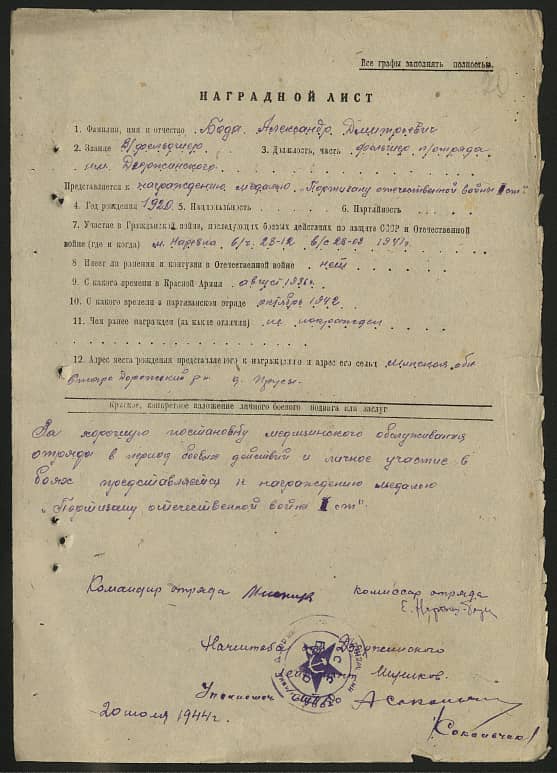 Все графы заполнять полностью.
20
НАГРАДНОЙ ЛИСТ
1. Фамилия, имя и отчество Бода Александр Дмитриевич
2. Звание в/фельдшер 3. Должность, часть фельшер п/отряда
им. Дзержинского.
Представляется к награждению медалью "Партизану отечественной войны I ст"
4. Год рождения 1920 5. Национальность 6. Партийность
7. Участие в Гражданской войне, последующих боевых действиях по защите СССР и Отечественной
войне (где и когда) м. Наревка в/ч 23-12 1941 г.
8. Имеет ли ранения и контузии в Отечественной войне нет
9. С какого времени в Красной Армии август
10. С какого времени в партизанском отряде октябрь 1942
11. Чем ранее награжден (за какие отличия) не награжден
12. Адрес места рождения представляемого к награждению и адрес его семьи Минская обл
Старо Дорожский р-н д. Прусы.
Краткое, конкретное изложение личного боевого подвига или заслуг
За хорошую постановку медицинского обслуживания
отряда в период боевых действий и личное участие в
боях представляется к награждению медалью
"Партизану отечественной войны I ст".
Командир отряда комиссар отряда
Начштаба Дзержинского
лейтенант
20 июля 1944 г.